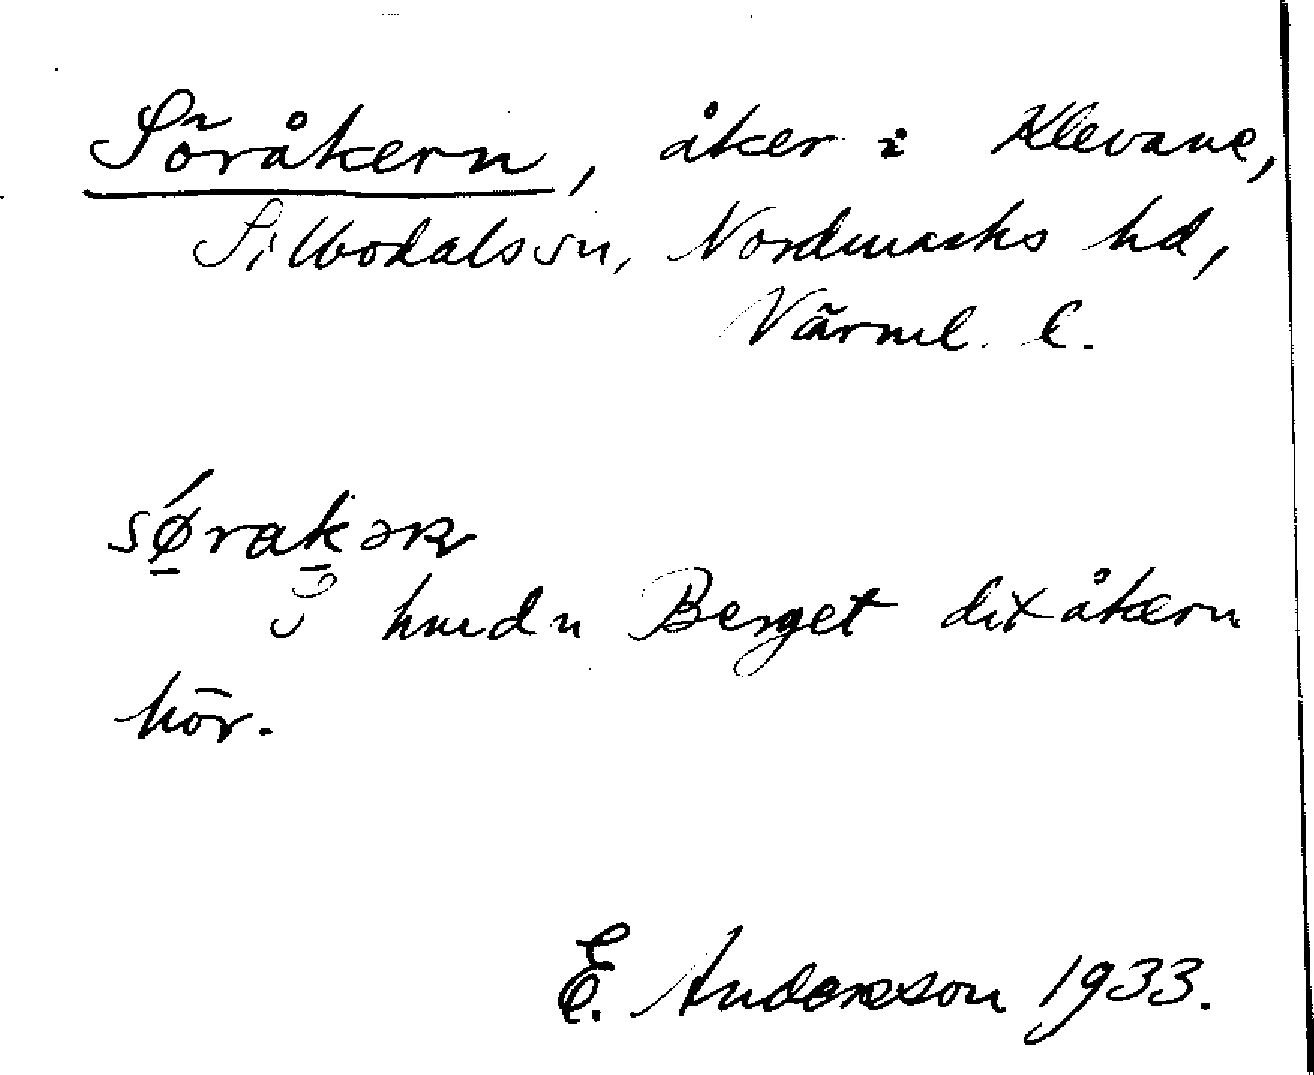 Söråkern, åker i Klevane,
Silbodals sn, Nordmarks hd,
Värml. l.
sørakər
i hmd n Berget dit åkern
hör.
E. Andersson 1933.